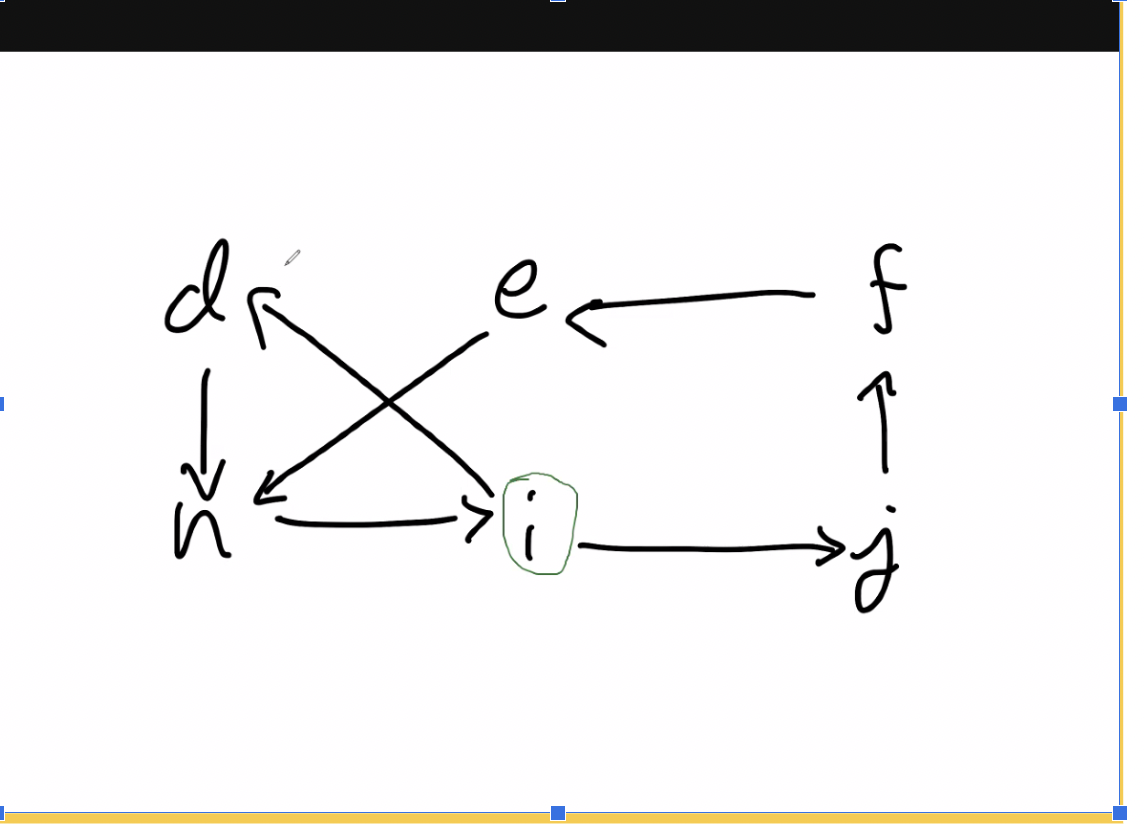 d e f
n i j